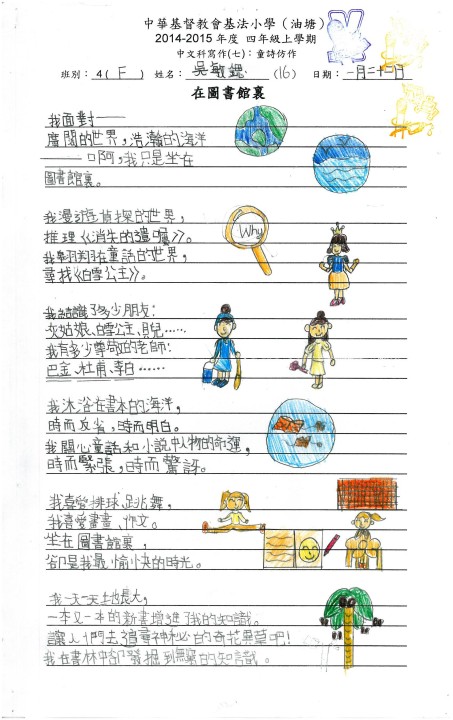 中華基督教會基法小學（油塘）
2014-2015 年度 四年級上學期
中文科寫作(七)：童詩仿作
班別： 4 ( F ) 姓名： 吳敏 (16) 日期： 一月二十日
在圖書館裏
我面對——
廣闊的世界，浩瀚的海洋
——啊，我只是坐在
圖書館裏。
我漫遊偵探的世界，
推理《消失的遺囑》。
我翱翔在童話的世界，
尋找《白雪公主》。
Why
我結識了多少朋友：
灰姑娘、白雪公主、貝兒……
我有多少尊敬的老師：
巴金、杜甫、李白……
我沐浴在書本的海洋，
時而反省，時而明白。
我關心童話和小說中人物的命運，
時而緊張，時而驚訝。
我喜愛排球、跳舞，
我喜愛畫畫、作文。
坐在圖書館裏，
卻是我最愉快的時光。
我一天一天地長大，
一本又一本的新書增進了我的知識。
讓人們去追尋神秘的奇花異草吧！
我在書林中卻發掘到無窮的知識。